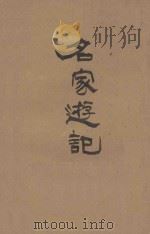 名家遊記
mtoou.info